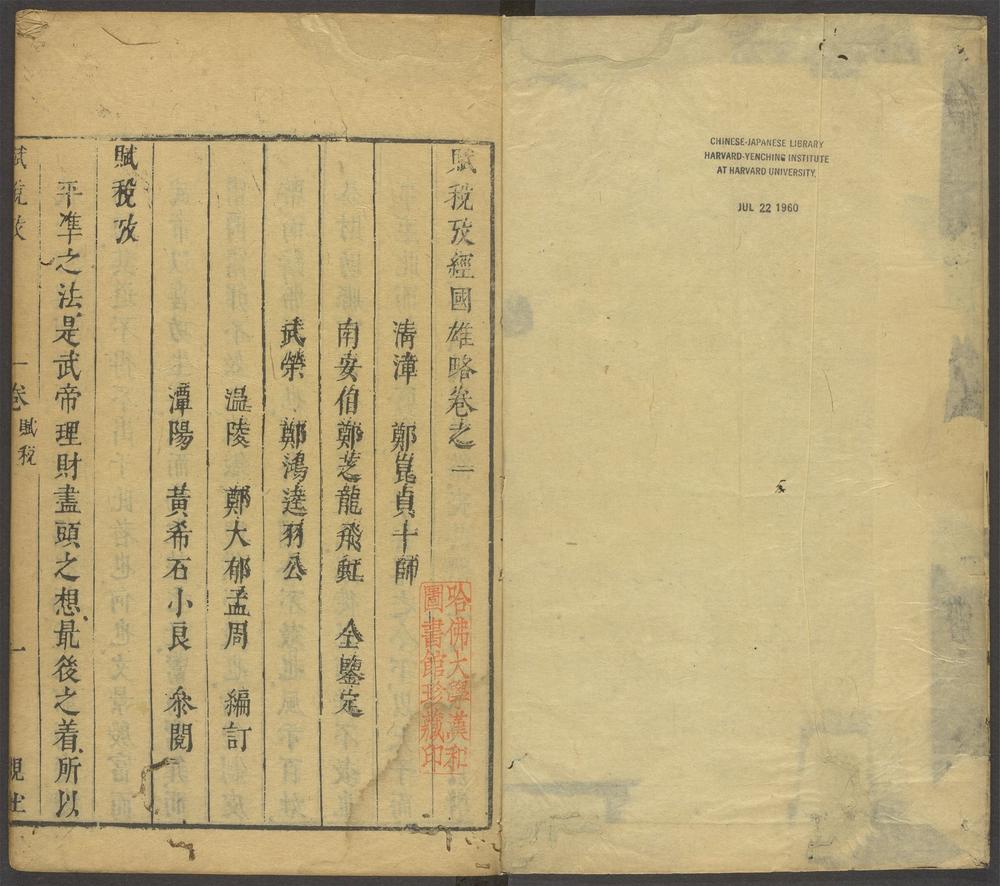 CHINESE-JAPANESE LIBRARY
HARVARD-YENCHING INSTITUTE
AT HARVARD UNIVERSITY.
JUL 22 1960
賦稅攷經國雄略卷之一
清漳 鄭崑貞十師
南安伯鄭芝龍飛虹 仝鑒定
武榮 鄭鴻逵羽公
温陵 鄭大郁孟周 編訂
潭陽 黃希石小良 叅閱
賦稅攷
平準之法是武帝理財盡頭之想最後之着所以
賦稅攷 一卷 賦稅 一 觀社
哈佛大學漢和
圖書館珍藏印